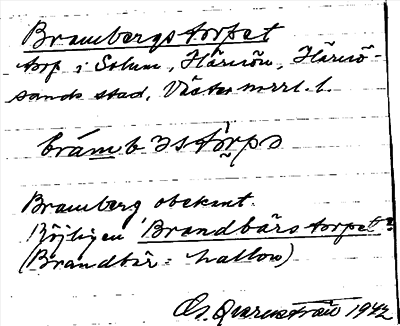 Brambergstorpet
torp i Solum, Härnön, Härnö-
sands stad, Västernorrl. l.
brámbəstörpə
Bramberg obekant.
Möjligen 'Brandbärstorpet'?
(Brandbär = hallon)
1942